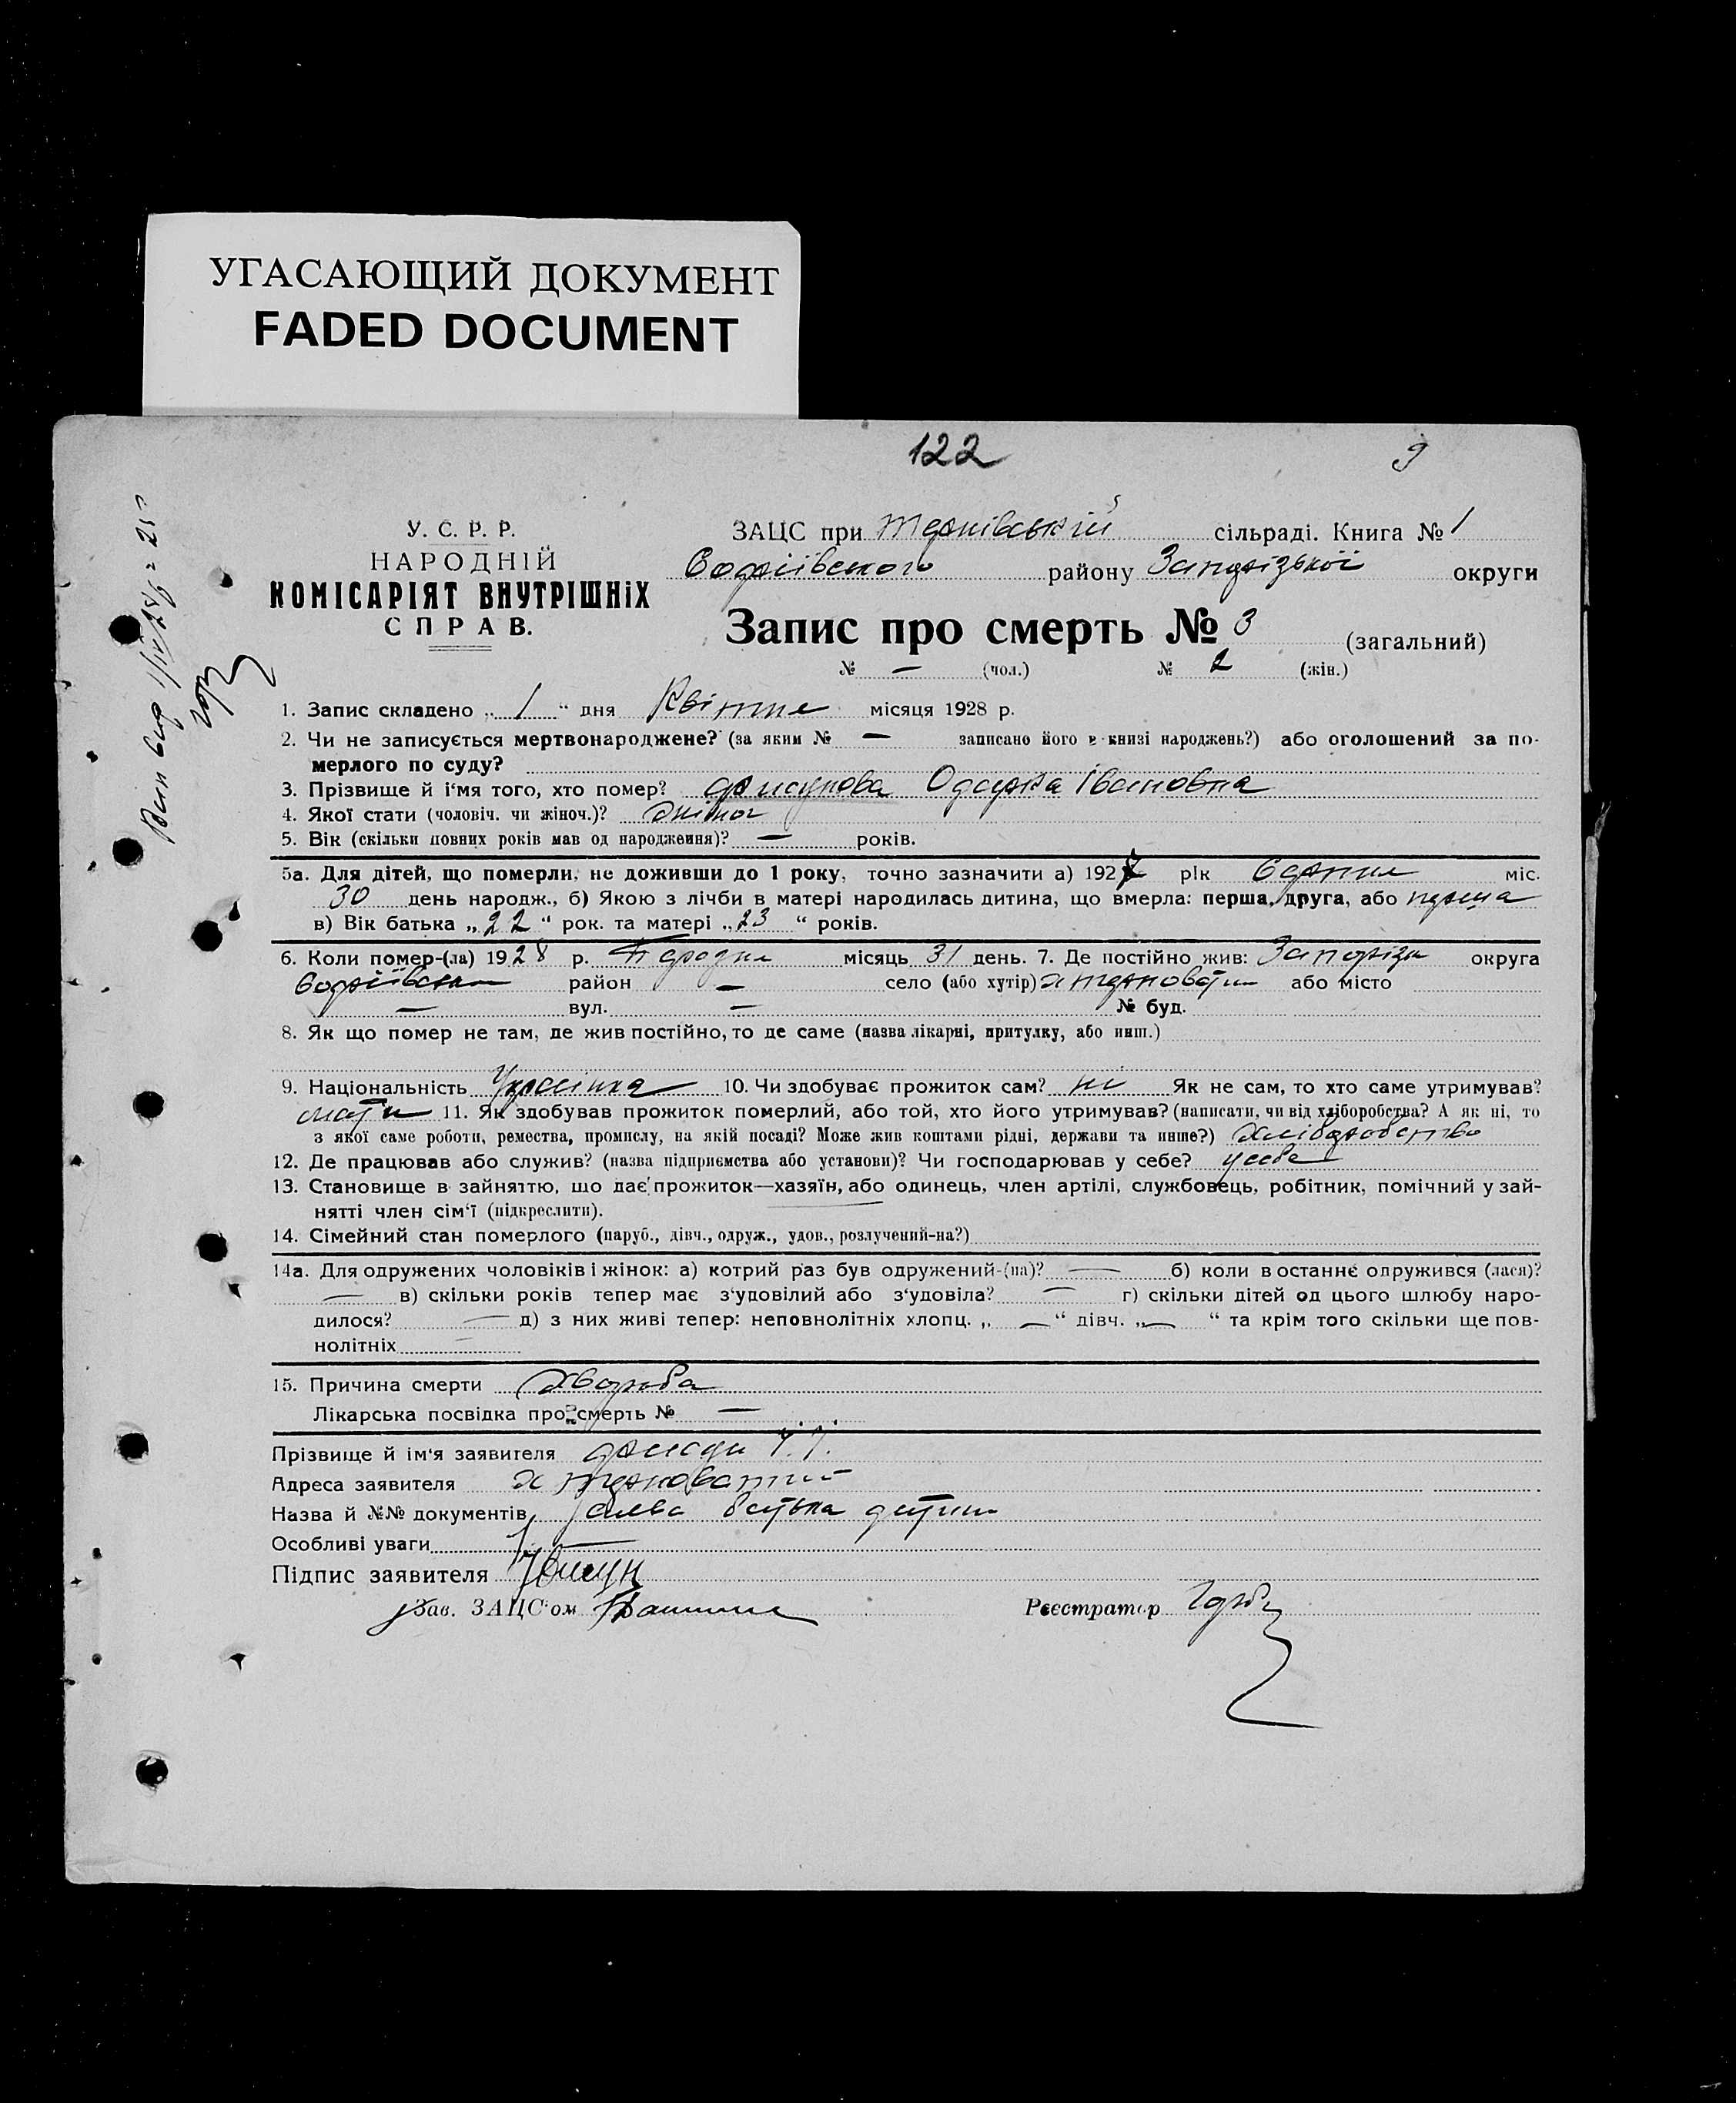 УГАСАЮЩИЙ ДОКУМЕНТ
FADED DOCUMENT
122
9
У. С. Р. Р.
НАРОДНІЙ
КОМІСАРІЯТ ВНУТРІШНіХ
СПРАВ.
ЗАЦС при Тернівській сільраді. Книга № 1
Софіївского району Запорізької округи
Запис про смерть № 3 (загальний)
№ — (чол.) № 2 (жін.)
1. Запис складено „ 1 “ дня Квітня місяця 1928 р.
2. Чи не записується мертвонароджене? (за яким № — записано його в книзі народжень?) або оголошений за по-
мерлого по суду?
3. Прізвище й і'мя того, хто помер? Івановна
4. Якої стати (чоловіч. чи жіноч.)? жіноч
5. Вік (скільки повних років мав од народження)? — років.
5а. Для дітей, що померли, не доживши до 1 року, точно зазначити а) 1927 рік Серпня міс.
30 день народж., б) Якою з лічби в матері народилась дитина, що вмерла: перша, друга, або перша
в) Вік батька „ 22 “ рок. та матері „ 23 “ років.
6. Коли помер-(ла) 1928 р. Березня місяць 31 день. 7. Де постійно жив: Запорізьк округа
Софіївськ район — село (або хутір) або місто
— вул. — № буд.
8. Як що помер не там, де жив постійно, то де саме (назва лікарні, притулку, або инш.)
9. Національність Українка 10. Чи здобуває прожиток сам? ні Як не сам, то хто саме утримував?
мати 11. Як здобував прожиток померлий, або той, хто його утримував? (написати, чи від хліборобства? А як ні, то
з якої саме роботи, ремества, промислу, на якій посаді? Може жив коштами рідні, держави та инше?) Хліборобство
12. Де працював або служив? (назва підприємства або установи)? Чи господарював у себе? у себе
13. Становище в зайняттю, що дає прожиток—хазяїн, або одинець, член артілі, службовець, робітник, помічний у зай-
нятті член сім'ї (підкреслити).
14. Сімейний стан померлого (паруб., дівч., одруж., удов., розлучений-на?)
14а. Для одружених чоловіків і жінок: а) котрий раз був одружений-(на)? — б) коли в останнє одружився (лася)?
— в) скільки років тепер має з'удовілий або з'удовіла? — г) скільки дітей од цього шлюбу наро-
дилося? — д) з них живі тепер: неповнолітніх хлопц. „ — “ дівч. „ — “ та крім того скільки ще пов-
нолітніх —
15. Причина смерти Хвороба
Лікарська посвідка про смерть № —
Прізвище й ім'я заявителя
Адреса заявителя х
Назва й №№ документів батька дитини
Особливі уваги —
Підпис заявителя
Зав. ЗАЦС'ом
Реєстратор